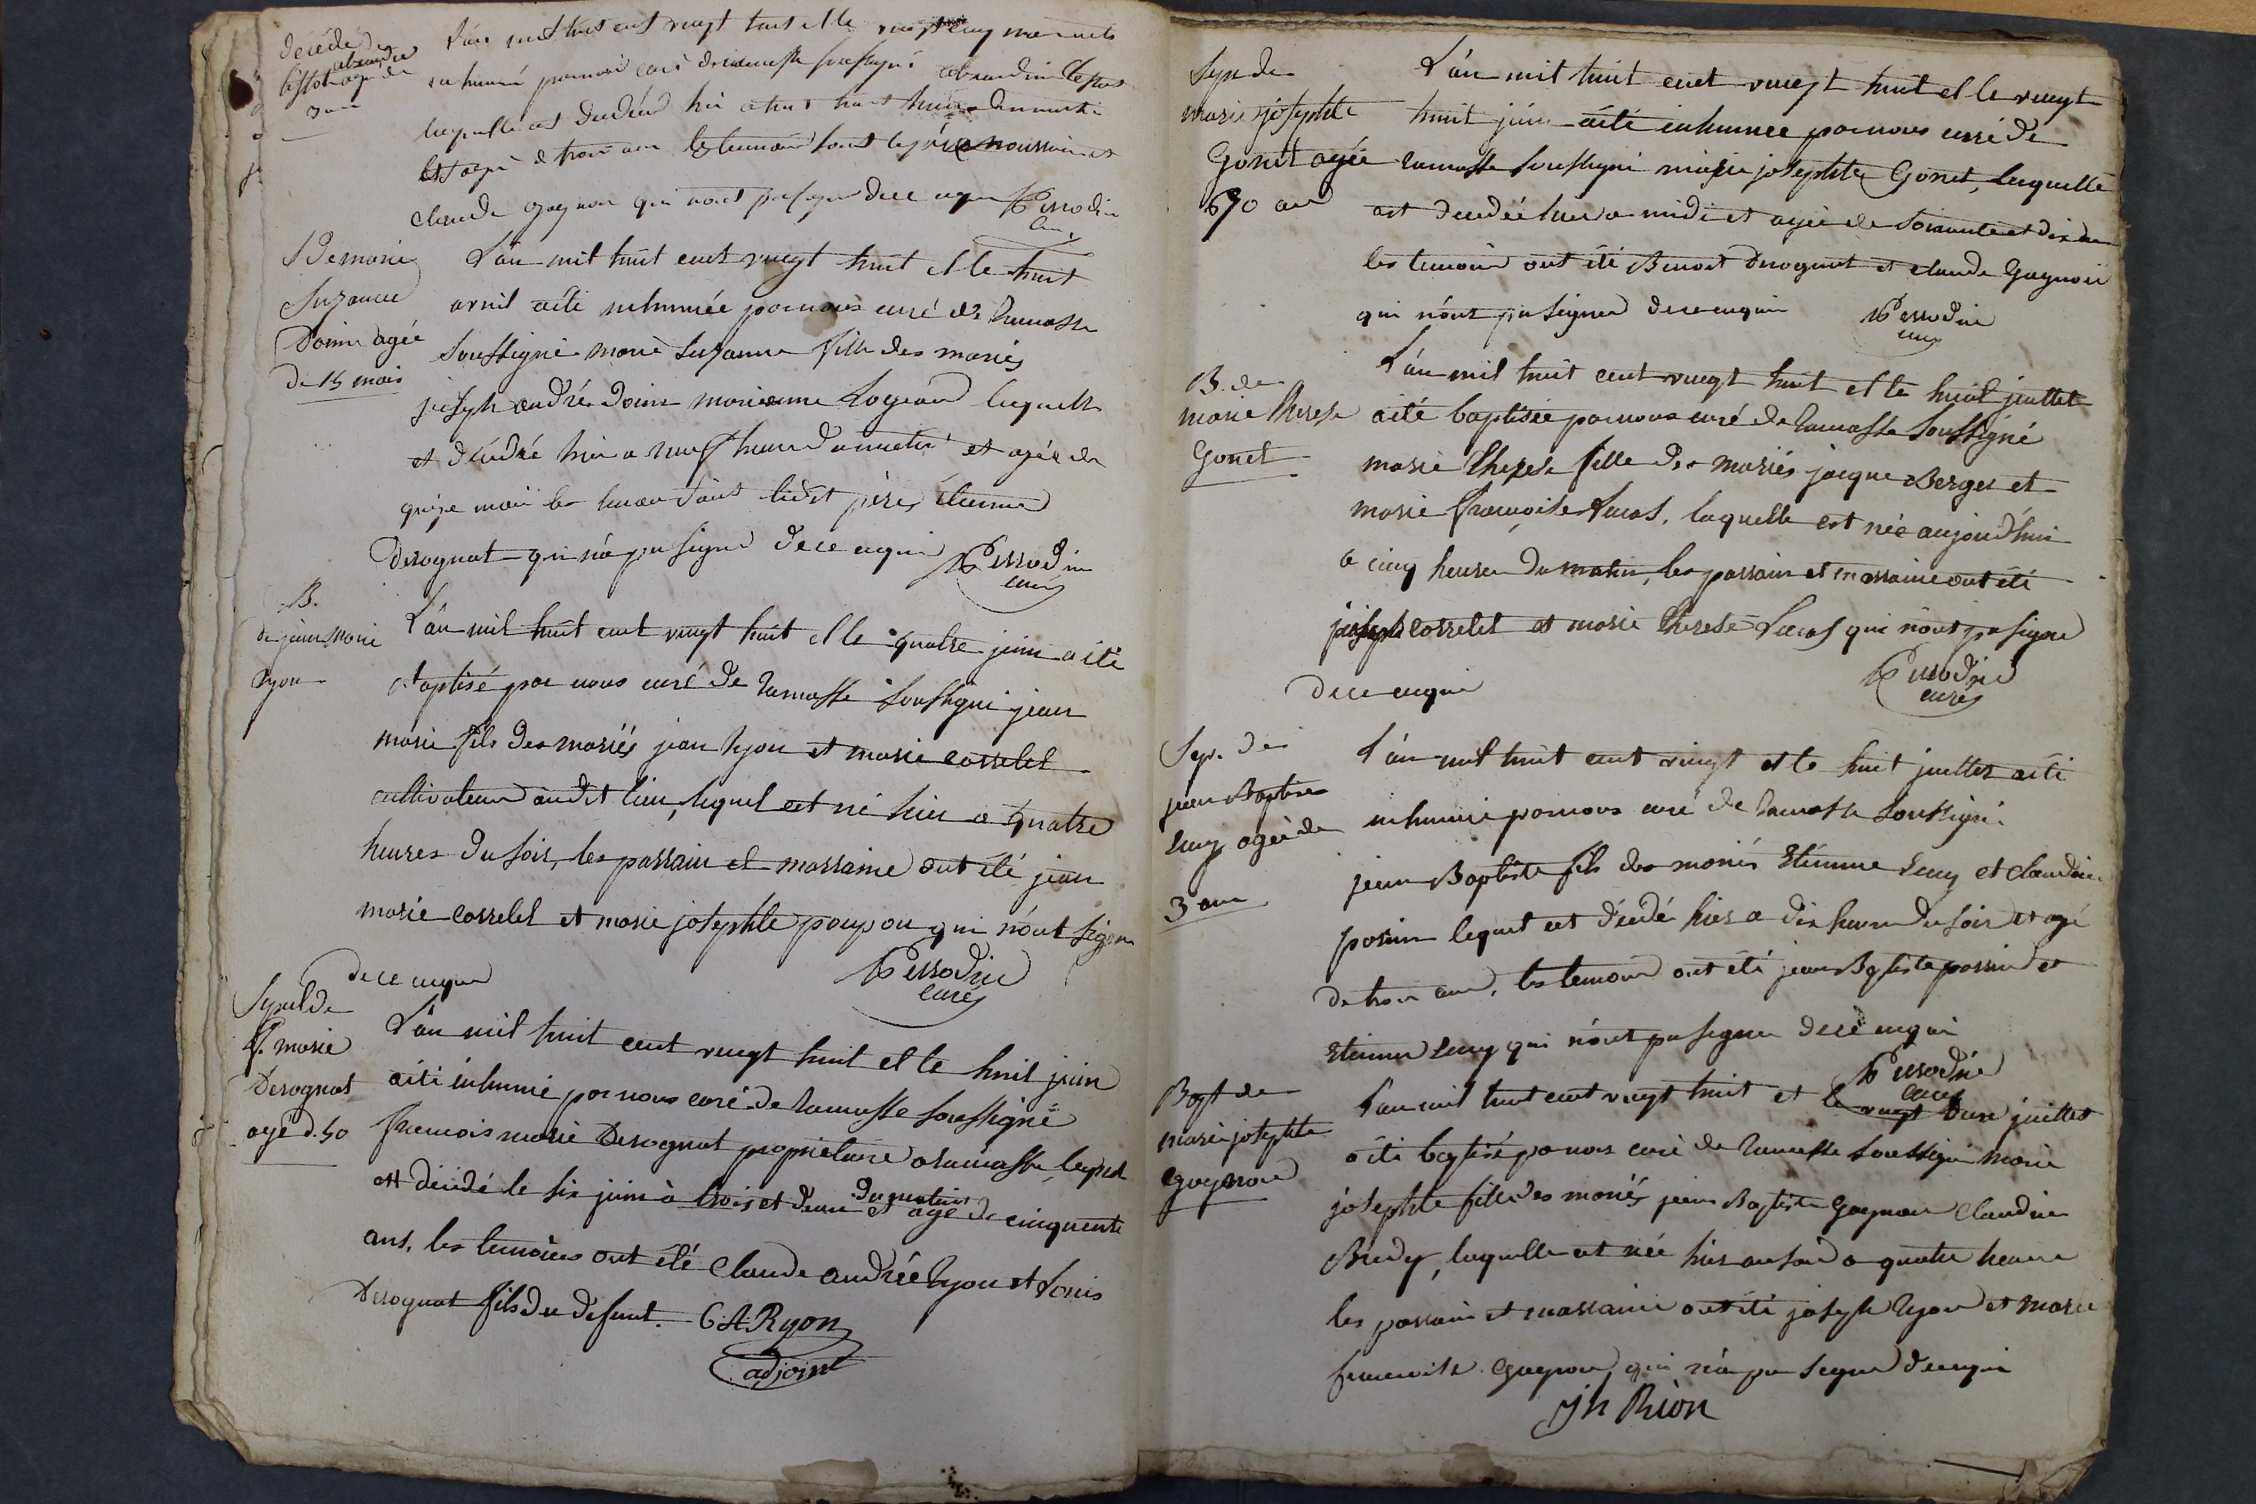 décédé
agé de
3 ans
L'an mil huit cent vingt huit et le vingt cinq mars
inhumé par nous curé de ramasse soussigné
les temoins sont
claude gagnon qui n'ont pu signer de ce enquis Perrodin
curé
S de marie
Suzanne
Doin agée
de 15 mois
L'an mil huit cent vingt huit et le huit
avril a été inhumée par nous curé de ramasse
soussigné marie Suzanne fille des mariés
joseph andré doin marianne laquelle
et décédée hier a neuf heures du matin et agée de
quinze mois les sont ledit père etienne
Derognat qui n'a pu signer de ce enquis Perrodin
curé
B.
de jean marie
Ryon
L'an mil huit cent vingt huit et le quatre juin a été
baptisé par nous curé de ramasse soussigné jean
marie fils des mariés jean Ryon et marie correlet
cultivateur audit lieu, lequel est né hier a quatre
heures du soir, les parrain et marraine ont été jean
marie correlet et marie josephte poupon qui n'ont signer
de ce enquis Perrodin
curé
Sepul de
f. marie
Derognat
agé d. 50
L'an mil huit cent vingt huit et le huit juin
a été inhumé par nous curé de ramasse soussigné
francois marie Derognat proprietaire a ramasse, lequel
est décédé le six juin à trois et demi du matin et agé de cinquente
ans, les temoins ont été Claude andrée Ryon et Louis
Derognat fils du defunt. C A Ryon
adjoint
Sep de
marie josephte
Gonet agée
70 ans
L'an mil huit cent vingt huit et le vingt
huit juin a été inhumee par nous curé de
ramasse soussigné marie josephte Gonet, laquelle
est decedée hier a midi et agée de soixante et dix ans
les temoins ont été Benoit Derognat et claude Gagnon
qui n'ont pu signer de ce enquis Perrodin
curé
B. de
marie therese
Gonet
L'an mil huit cent vingt huit et le huit juillet
a été baptisée par nous curé de ramasse soussigné
marie therese fille des mariés jacque Berger et
marie francoise Lucas, laquelle est née aujourd'hui
a cinq heures du matin, les parrain et marraine ont été
joseph correlet et marie therese Lucas qui n'ont pu signer
de ce enquis Perrodin
curé
Sep. de
jean Baptiste
agé de
3 ans
L'an mil huit cent vingt et le huit juillet a été
inhumé par nous curé de ramasse soussigné
jean Baptiste fils des mariés Etienne et claudine
lequel est décédé hier a dix heures du soir et agé
de trois ans, les temoins ont été jean Baptiste et
Etienne qui n'ont pu signer de ce enquis
Perrodin
curé
Bapt de
marie josephte
Gagnon
L'an mil huit cent vingt huit et le vingt juillet
a été baptisé par nous curé de ramasse soussigné marie
josephte fille des mariés jean Baptiste Gagnon Claudine
laquelle est née hier au soir a quatre heures
les parrain et marraine ont été joseph Ryon et marie
francoise Gagnon, qui n'a pu signer de enquis
Jh Rion